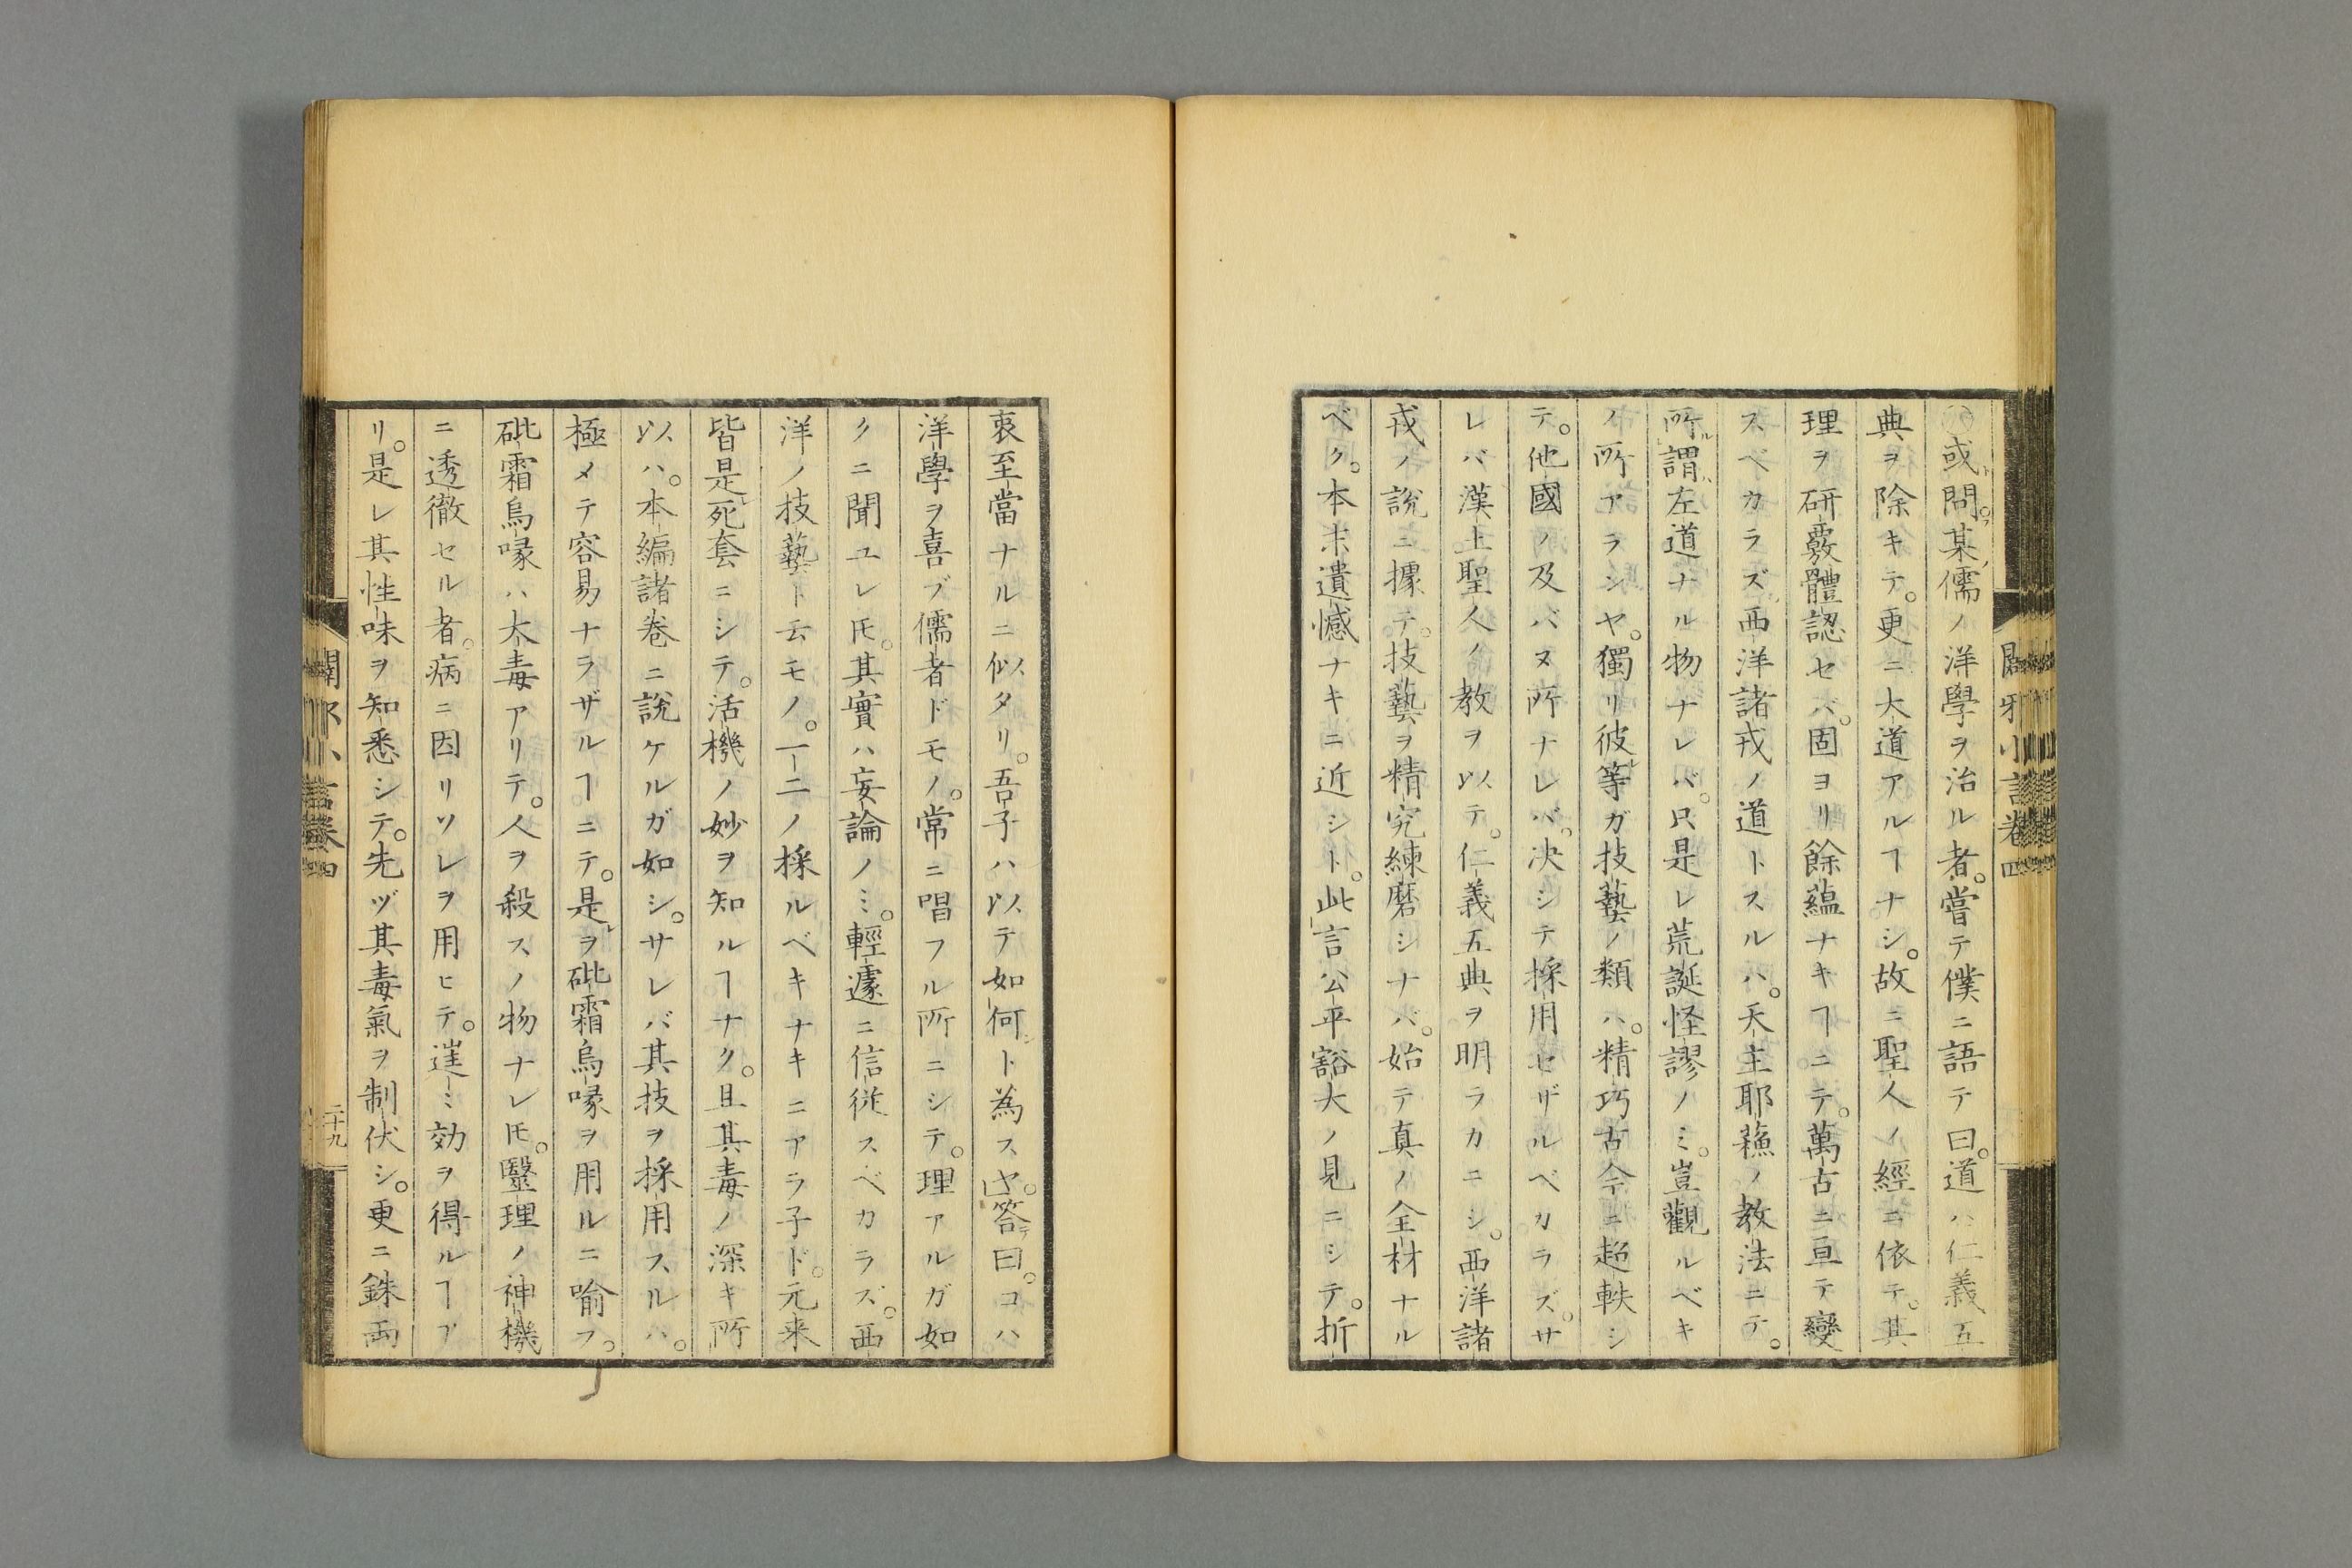 〇或問。某儒ノ洋學ヲ治ル者。嘗テ僕ニ語テ曰。道ハ仁義五
典ヲ除キテ。更ニ大道アルヿナシ。故ニ聖人ノ經ニ依テ。其
理ヲ研覈體認セバ。固ヨリ餘蘊ナキヿニテ。萬古ニ亘テ變
スベカラズ。西洋諸戎ノ道トスルハ。天主耶蘓ノ教法ニテ。
所謂左道ナル物ナレバ。只是レ荒誕怪謬ノミ。豈觀ルベキ
ノ所アランヤ。獨リ彼等ガ技藝ノ類ハ。精巧古今ニ超軼シ
テ。他國ノ及バヌ所ナレバ。決シテ採用セザルベカラズ。サ
レバ漢土聖人ノ教ヲ以テ。仁義五典ヲ明ラカニシ。西洋諸
戎ノ說ニ據テ。技藝ヲ精究練磨シナバ。始テ真ノ全材ナル
ベク。本末遺憾ナキニ近シト。此言公平豁大ノ見ニシテ。折
闢邪小言卷四
衷至當ナルニ似タリ。吾子ハ以テ如何ト為スヤ。答曰。コハ
洋學ヲ喜ブ儒者ドモノ。常ニ唱フル所ニシテ。理アルガ如
クニ聞ユレ𪜈。其實ハ妄論ノミ。輕遽ニ信從スベカラズ。西
洋ノ技藝ト云モノ。一二ノ採ルベキナキニアラ子ド。元来
皆是死套ニシテ。活機ノ妙ヲ知ルヿナク。且其毒ノ深キ所
以ハ。本編諸卷ニ說ケルガ如シ。サレバ其技ヲ採用スルハ。
極メテ容易ナラザルヿニテ。是ヲ砒霜烏喙ヲ用ルニ喩フ。
砒霜烏喙ハ大毒アリテ。人ヲ殺スノ物ナレ𪜈。毉理ノ神機
ニ透徹セル者。病ニ因リソレヲ用ヒテ。逬ミ効ヲ得ルヿア
リ。是レ其性味ヲ知悉シテ。先ヅ其毒氣ヲ制伏シ。更ニ銖両
闢邪小言卷四
二十九